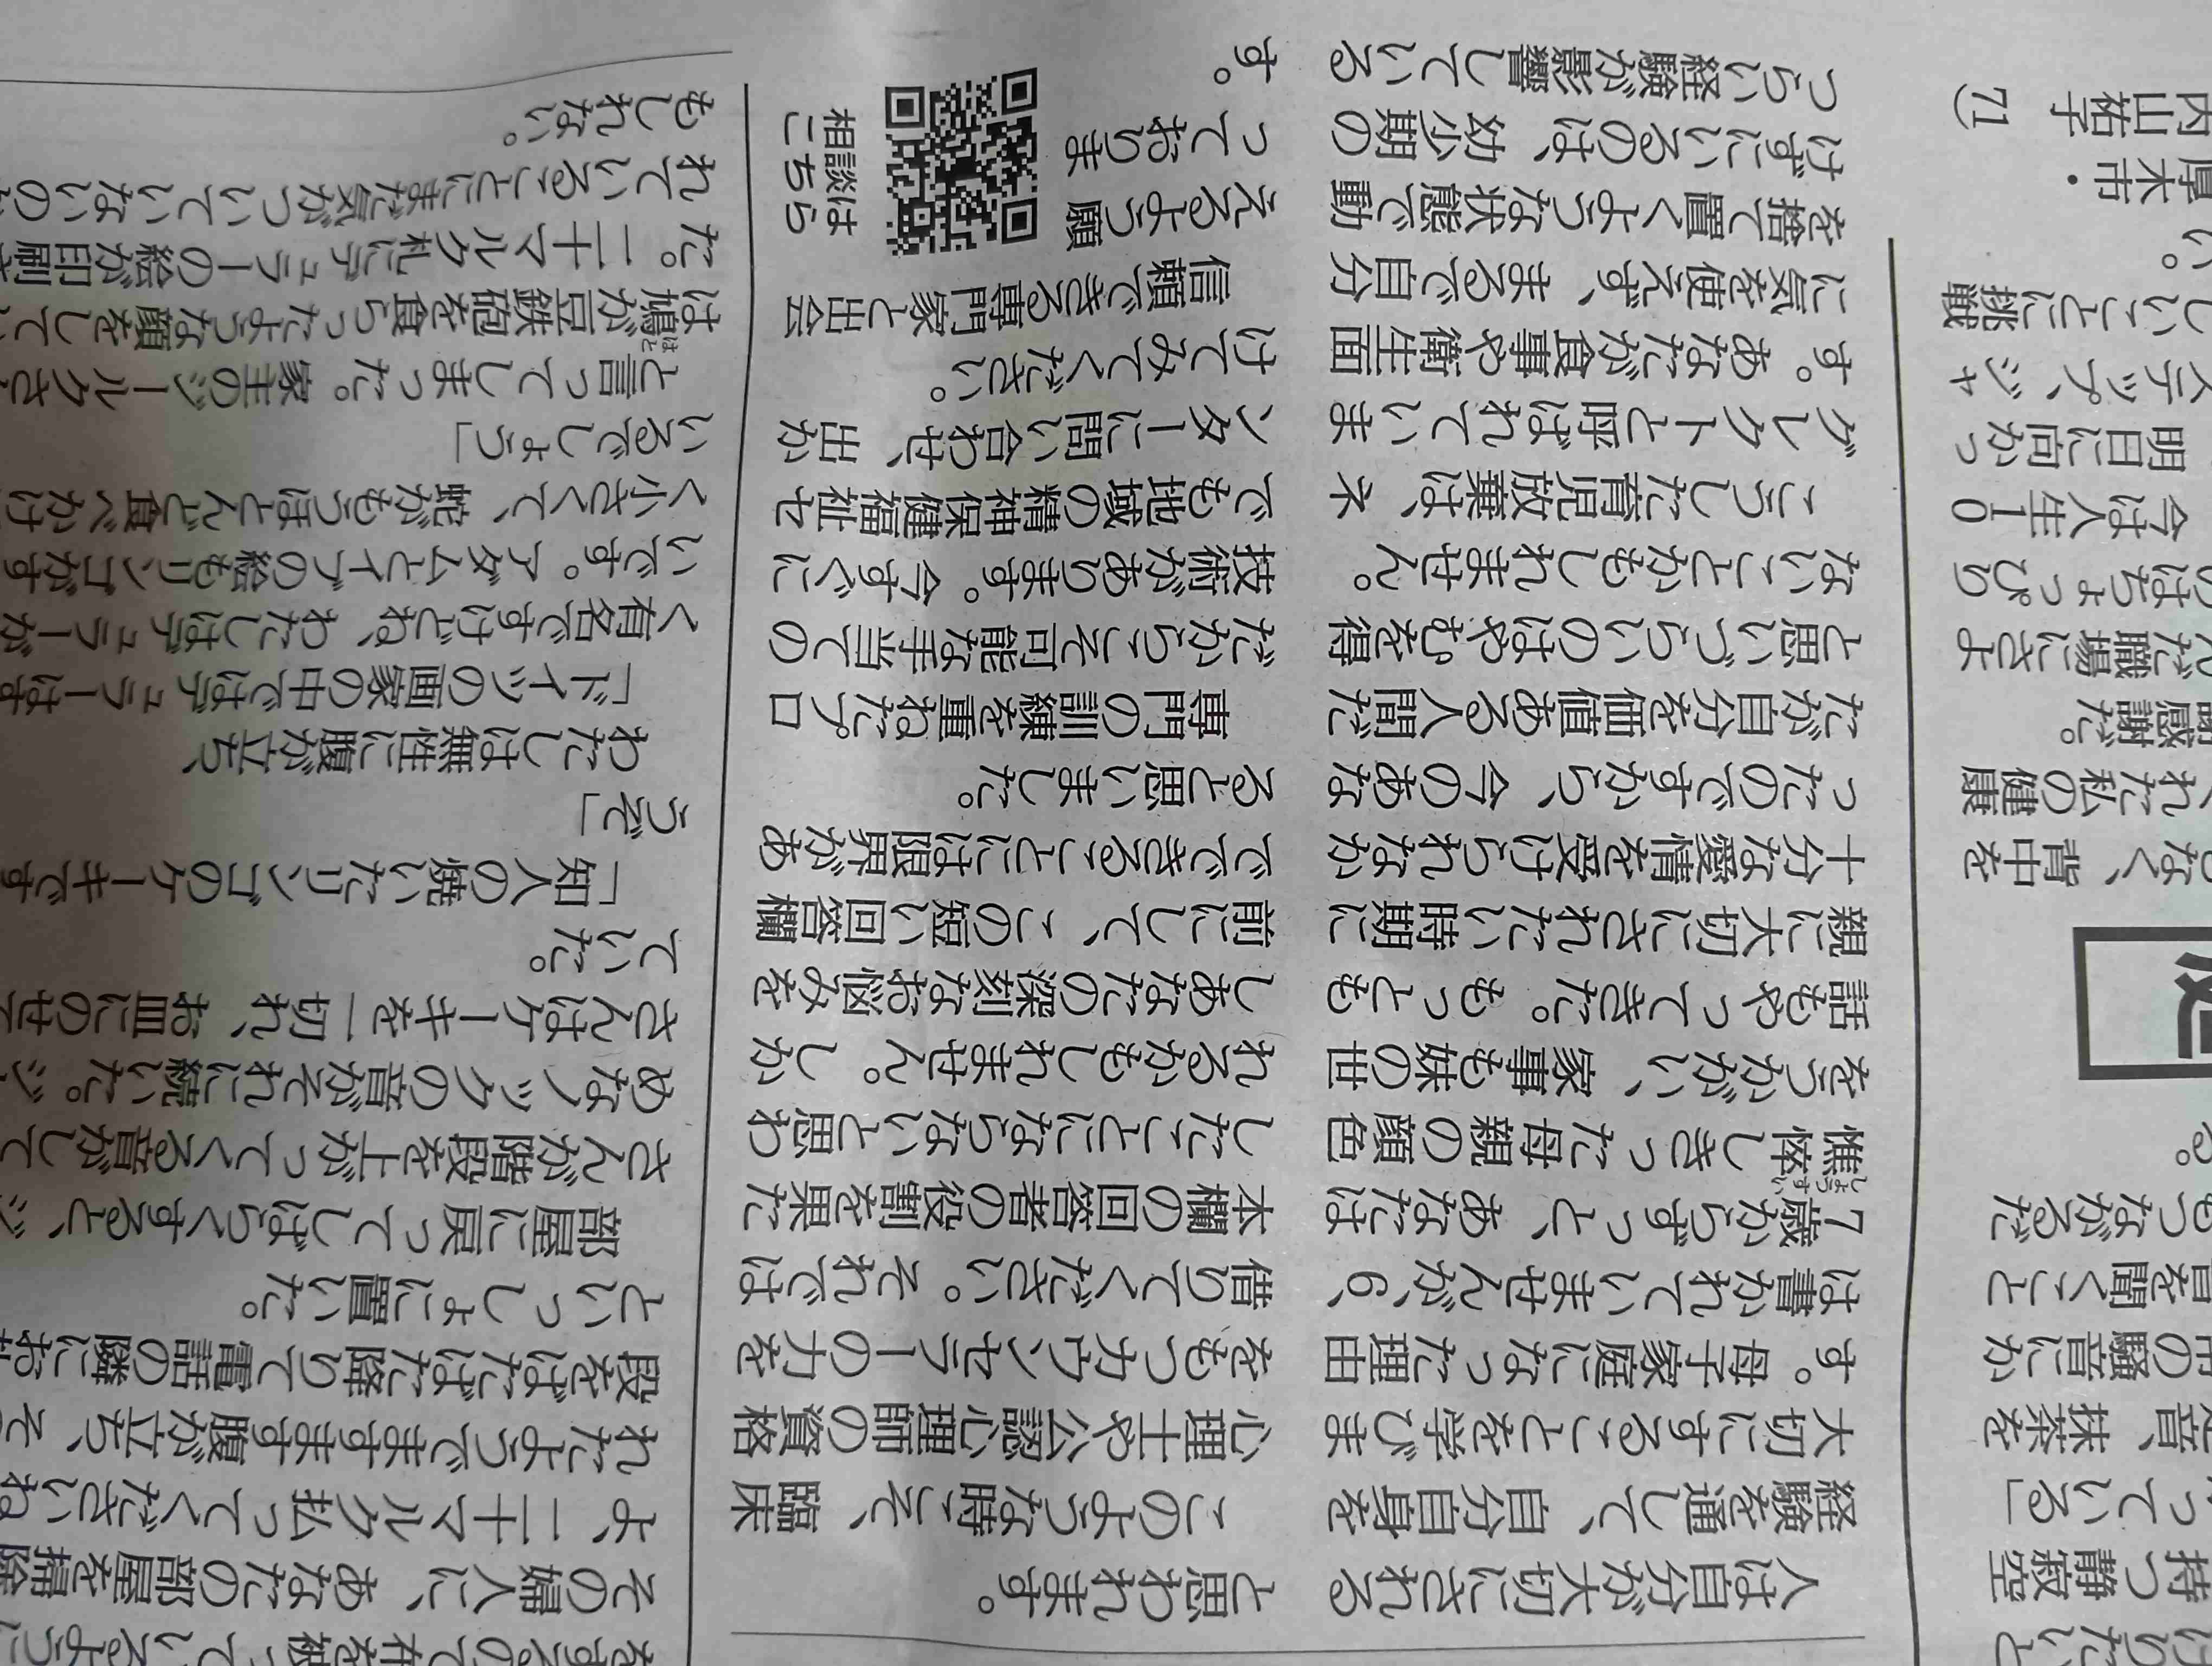 持つ静寂空
っている」
音、抹茶を
の騒音にか
音を聞くこと
もつながるだ
る。
なく、背中を
れた私の健康
感謝だ。
だ職場にさよ
はちょっぴり
今は人生10
明日に向かっ
ステップ、ジャ
しいことに挑戦
い。
厚木市・
内山祐子 71)
人は自分が大切にされる
経験を通して、自分自身を
大切にすることを学びま
す。母子家庭になった理由
は書かれていませんが、6、
7歳からずっと、あなたは
憔悴しきった母親の顔色
をうかがい、家事も妹の世
話もやってきた。もっとも
親に大切にされたい時期に
十分な愛情を受けられなか
ったのですから、今のあな
たが自分を価値ある人間だ
と思いづらいのはやむを得
ないことかもしれません。
こうした育児放棄は、ネ
グレクトと呼ばれていま
す。あなたが食事や衛生面
に気を使えず、まるで自分
を捨て置くような状態で動
けずにいるのは、幼少期の
つらい経験が影響している
と思われます。
このような時こそ、臨床
心理士や公認心理師の資格
をもつカウンセラーの力を
借りてください。それでは
本欄の回答者の役割を果た
したことにならないと思わ
れるかもしれません。しか
しあなたの深刻なお悩みを
前にして、この短い回答欄
でできることには限界があ
ると思いました。
専門の訓練を重ねたプロ
だからこそ可能な手当ての
技術があります。今すぐに
でも地域の精神保健福祉セ
ンターに問い合わせ、出か
けてみてください。
信頼できる専門家と出会
えるよう願
っておりま
す。
相談は
こちら
その婦人に、あなたの部屋を掃除
よ、二十マルク払ってくださいね
れたようでますます腹が立ち、そ
段をばたばた降りて電話の隣にお
といっしょに置いた。
部屋に戻ってしばらくすると、ジ
さんが階段を上がってくる音がして
めなノックの音がそれに続いた。ジ
さんはケーキを一切れ、お皿にのせて
ていた。
「知人の焼いたリンゴのケーキです
うぞ」
わたしは無性に腹が立ち、
「ドイツの画家の中ではデューラーはす
く有名ですけどね、わたしはデューラーが
いです。アダムとイブの絵もリンゴがす
く小さくて、蛇がもうほとんど食べかけ
いるでしょう」
と言ってしまった。家主のジールクさ
は鳩が豆鉄砲を食らったような顔をして
た。二十マルク札にデューラーの絵が印刷さ
れていることにまだ気がついていないの
もしれない。